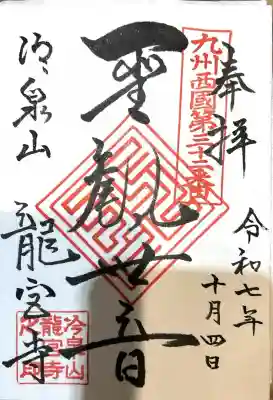 奉拝
令和七年
十月四日
九州西國第三十二番
聖観世音
冷泉山
龍宮寺
冷泉山
龍宮寺
之印